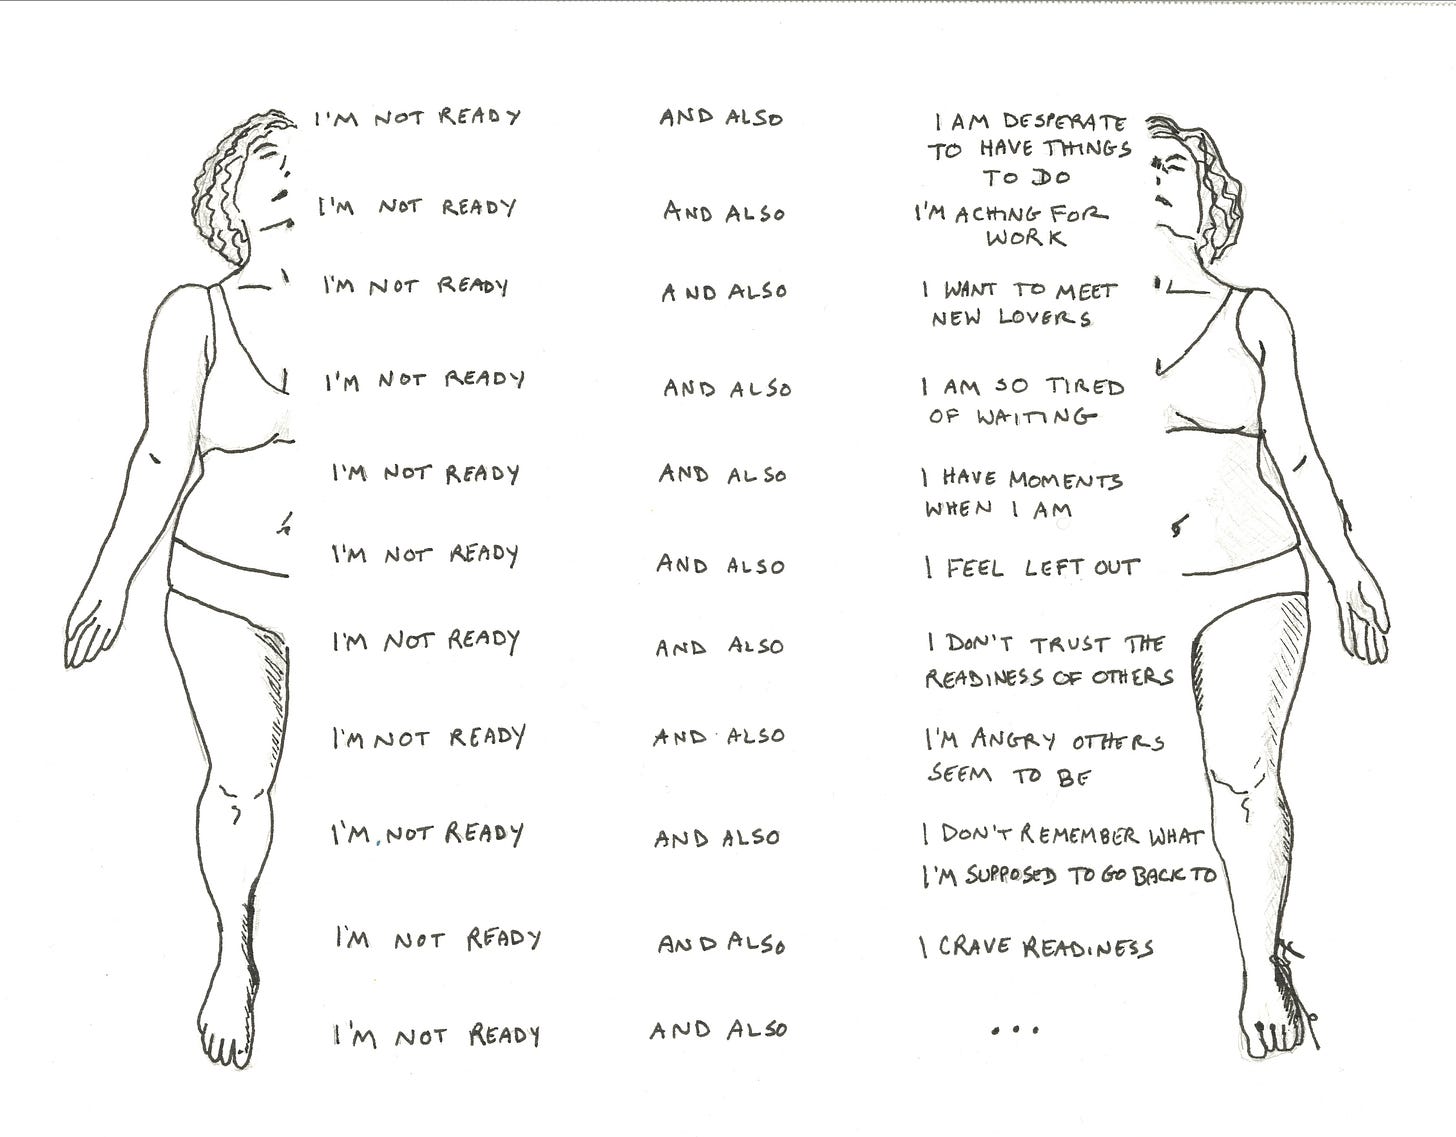 I'M NOT READY AND ALSO I AM DESPERATE
TO HAVE THINGS
TO DO
I'M NOT READY AND ALSO I'M ACHING FOR
WORK
I'M NOT READY AND ALSO I WANT TO MEET
NEW LOVERS
I'M NOT READY AND ALSO I AM SO TIRED
OF WAITING
I'M NOT READY AND ALSO I HAVE MOMENTS
WHEN I AM
I'M NOT READY AND ALSO I FEEL LEFT OUT
I'M NOT READY AND ALSO I DON'T TRUST THE
READINESS OF OTHERS
I'M NOT READY AND ALSO I'M ANGRY OTHERS
SEEM TO BE
I'M NOT READY AND ALSO I DON'T REMEMBER WHAT
I'M SUPPOSED TO GO BACK TO
I'M NOT READY AND ALSO I CRAVE READINESS
I'M NOT READY AND ALSO ...